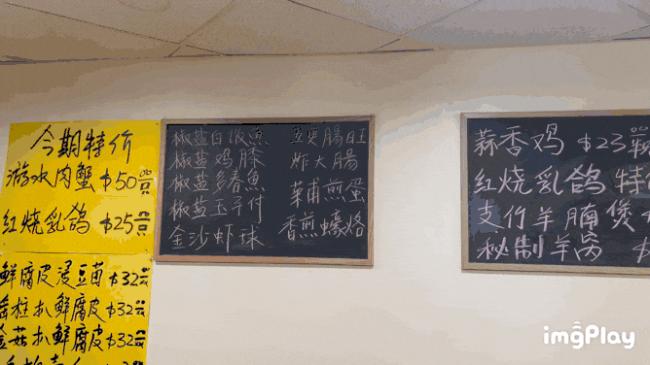 今期特价
游水肉蟹 $50
红烧乳鸽 $25
鲜腐皮浸豆苗 $32
扒鲜腐皮 $32
金菇扒鲜腐皮 $32
椒盐白饭鱼
椒盐鸡膝
椒盐多春鱼
椒盐玉子付
金沙虾球
豆豉腸旺
炸大腸
菜甫煎蛋
香煎蠔烙
蒜香鸡 $23
红烧乳鸽 特
支竹羊腩煲
秘制羊 $
imgPlay